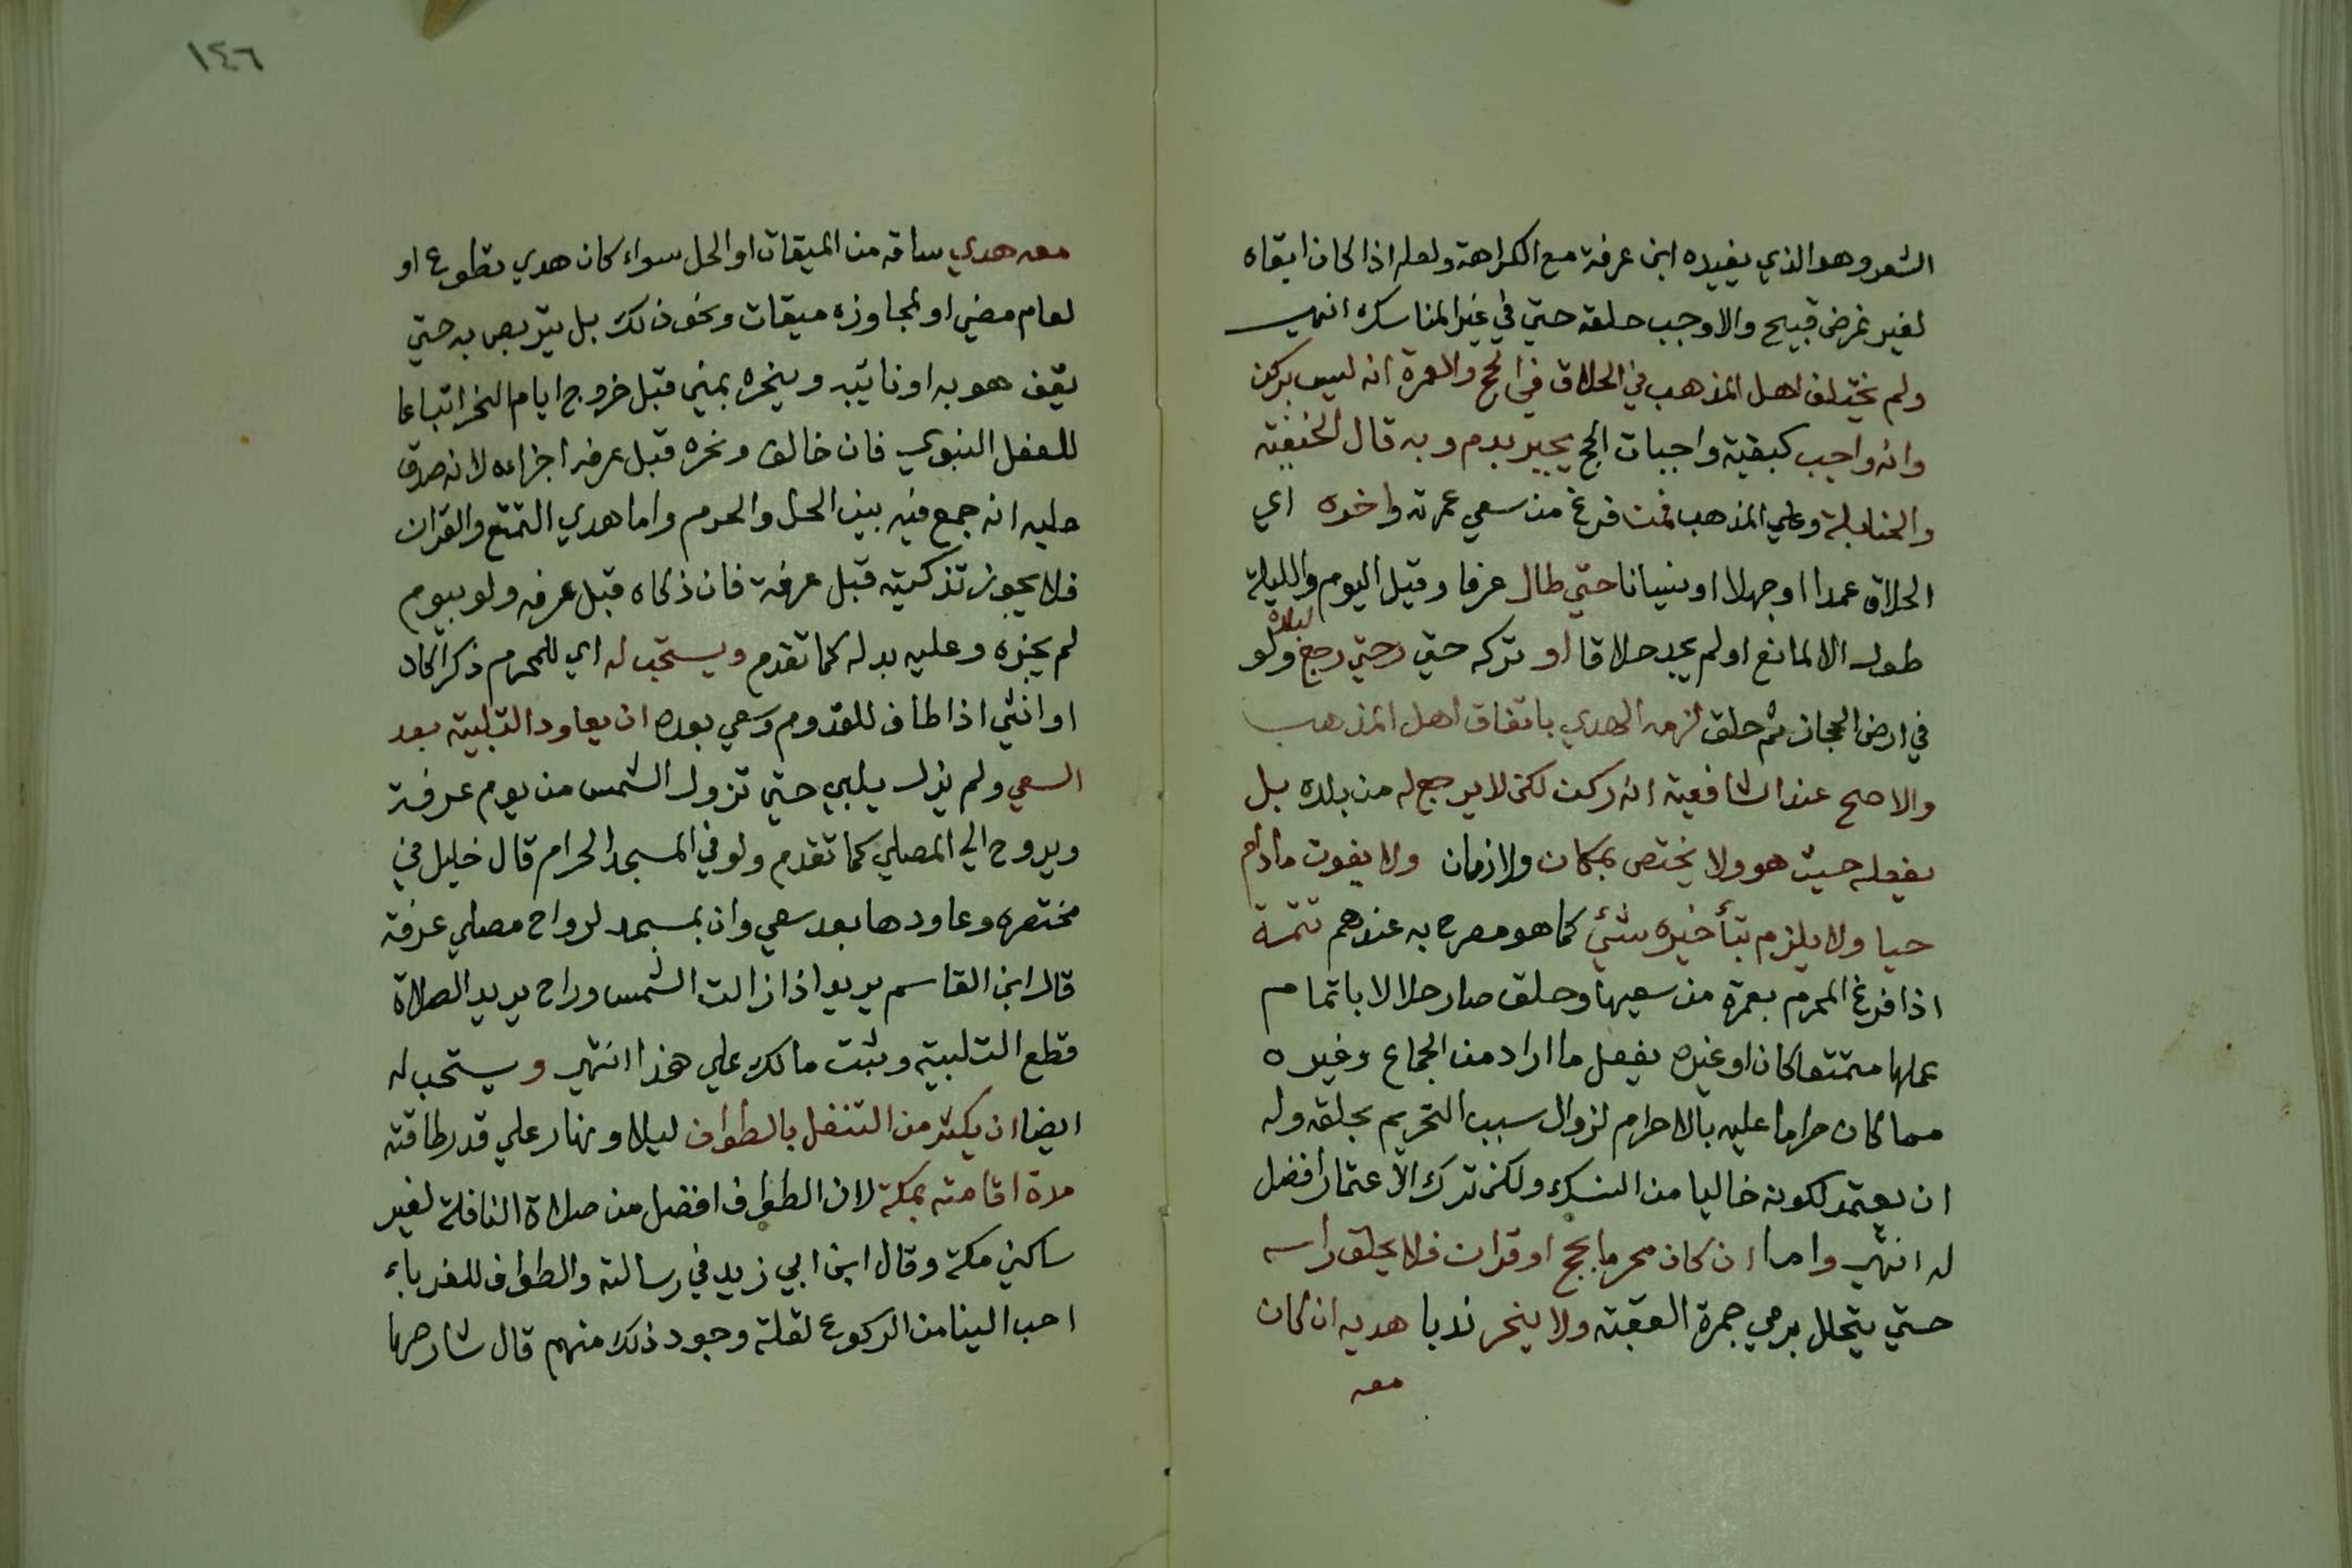 الشعر وهو الذي يفيده ابن عرفة مع الكراهة ولعله اذا كان ابقاه
لغير غرض قبيح والا وجب حلقه حتي في غير المناسك انتهي
ولم يختلف اهل المذهب في الحلاق في الحج والعمرة انه ليس بركن
وانه واجب كبقية واجبات الحج يجبر بدم وبه قال الحنفية
والحنابلة وعلي المذهب فمن فرغ من سعي عمرته واخره اي
الحلاق عمدا او جهلا او نسيانا حتي طال عرفا وقيل اليوم والليلة
طول الا لمانع او لم يجد حلاقا او تركه حتي رجع لبلده ولو
في ارض الحجاز ثم حلق لزمه الهدي باتفاق اهل المذهب
والاصح عند الشافعية انه ركن لكن لا يرجع له من بلده بل
يفعله حيث هو ولا يختص بمكان ولا زمان ولا يفوت ما دام
حيا ولا يلزم بتأخيره شئ كما هو مصرح به عندهم تتمة
اذا فرغ المحرم بعمرة من سعيها وحلق صار حلالا باتمام
عملها متمتعا كان او غيره يفعل ما اراد من الجماع وغيره
مما كان حراما عليه بالاحرام لزوال سبب التحريم بحلقه وله
ان يعتمر لكونه خاليا من النسك ولكن ترك الاعتمار افضل
له انتهي واما ان كان محرما بحج او قران فلا يحلق راسه
حتي يتحلل برمي جمرة العقبة ولا ينحر ندبا هديه ان كان
معه
١٤٦
معه هدي ساقه من الميقات او الحل سواء كان هدي تطوع او
لعام مضي او لمجاوزة ميقات ونحو ذلك بل يتربص به حتي
يقف هو به او نائبه وينحره بمني قبل خروج ايام النحر اتباعا
للفعل النبوي فان خالف ونحره قبل عرفه اجزاءه لانه صدق
عليه انه جمع فيه بين الحل والحرم واما هدي التمتع والقران
فلا يجوز تذكيته قبل عرفة فان ذكاه قبل عرفه ولو بيوم
لم يجزه وعليه بدله كما تقدم ويستحب له اي للمحرم ذكرا كان
او انثي اذا طاف للقدوم وسعي بعده ان يعاود التلبية بعد
السعي ولم يزل يلبي حتي تزول الشمس من يوم عرفة
ويروح الي المصلي كما تقدم ولو في المسجد الحرام قال خليل في
مختصره وعاودها بعد سعي وان بمسجد لرواح مصلي عرفة
قال ابن القاسم يريد اذا زالت الشمس وراح يريد الصلاة
قطع التلبية وثبت مالك علي هذا انتهي ويستحب له
ايضا ان يكثر من التنفل بالطواف ليلا ونهار علي قدر طاقته
مدة اقامته بمكة لان الطواف افضل من صلاة النافلة لغير
ساكني مكة وقال ابن ابي زيد في رسالته والطواف للغرباء
احب الينا من الركوع لقلة وجود ذلك منهم قال شارحها